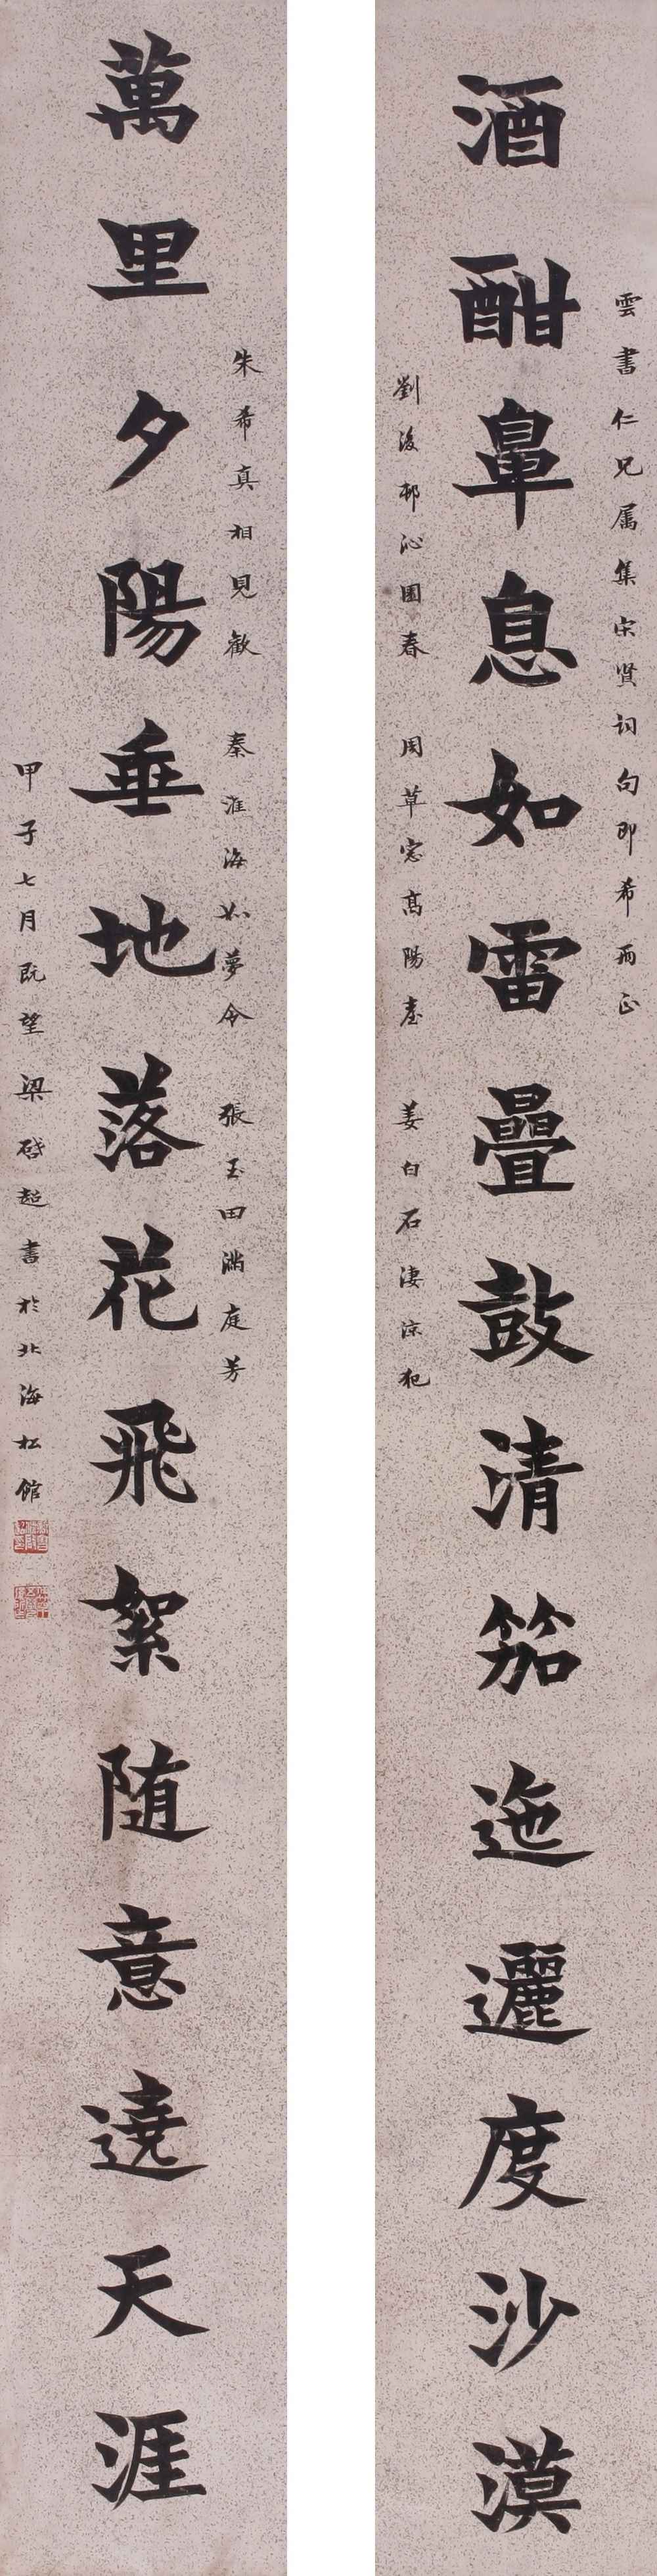 雲書仁兄属集宋賢詞句即希兩正
酒酣鼻息如雷疊鼓清笳迤邐度沙漠
劉後邨沁園春 周草窓高陽臺 姜白石淒涼犯
朱希真相見歡 秦淮海如夢令 張玉田滿庭芳
萬里夕陽垂地落花飛絮随意遶天涯
甲子七月既望梁啓超書於北海松館